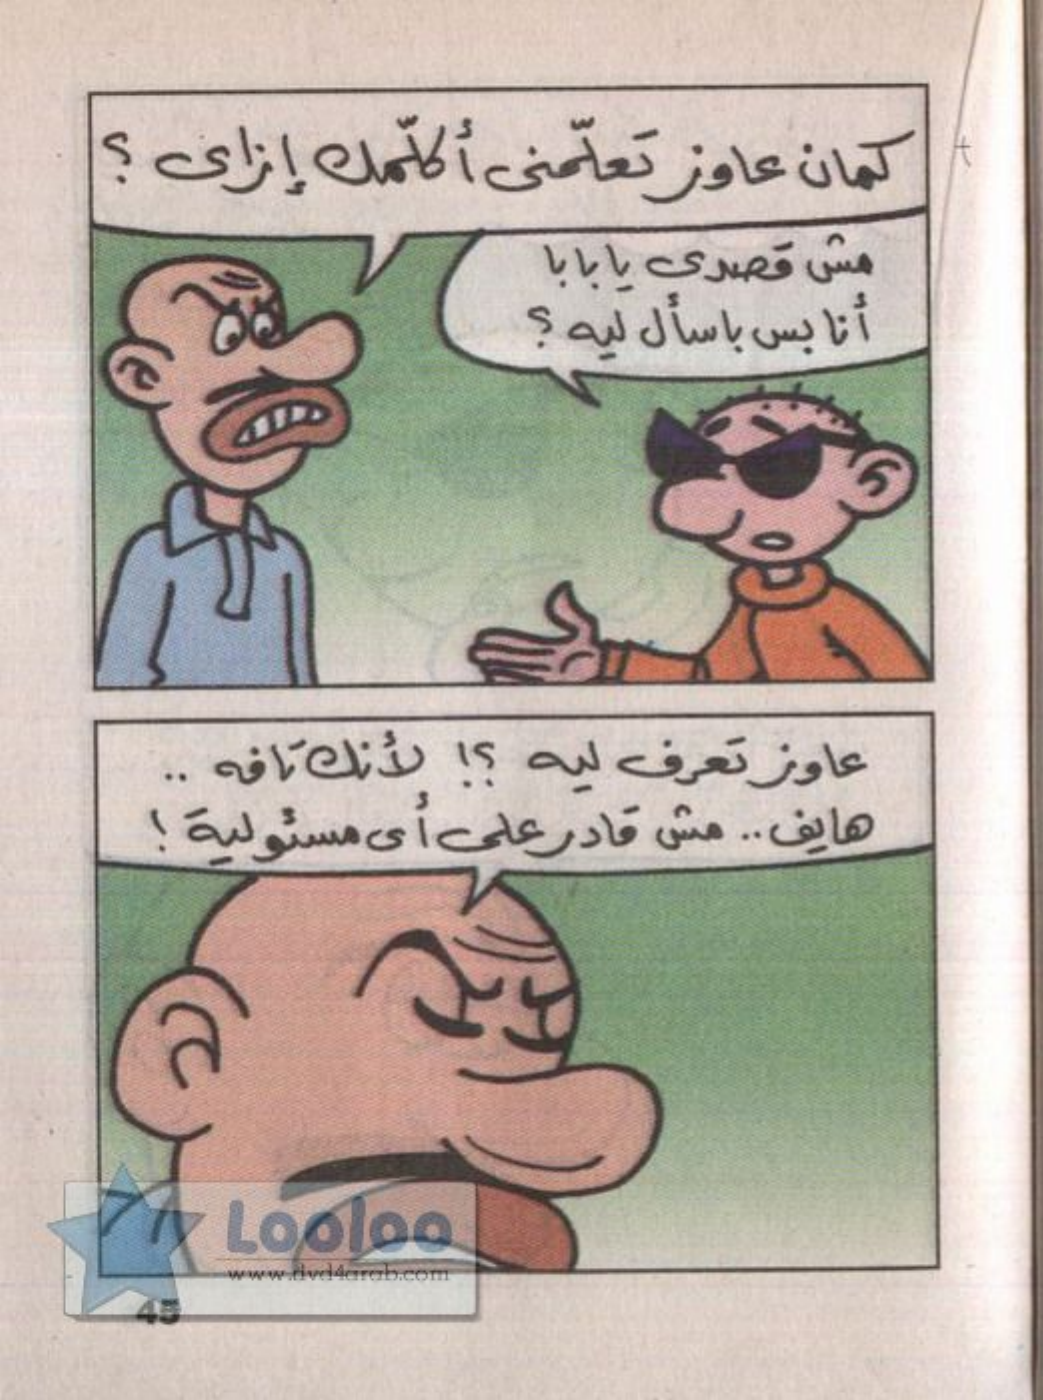 كمان عاوز تَعلّمنى أكلّمك إزاى ؟
مش قصدى يا بابا
أنا بس باسأل ليه ؟
عاوز تَعرف ليه ؟! لأنك تَافه ..
هايف.. مش قادر على أى مسئولية !
Looloo
www.dvd4arab.com
45